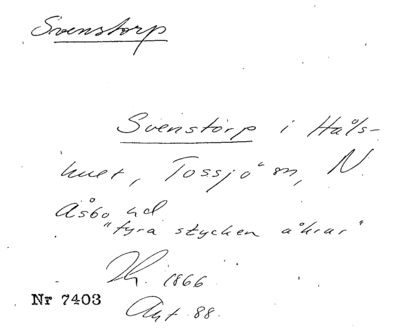 Svenstorp
Svenstorp i Håls-
huset, Tossjö sn, N.
Åsbo hd
"fyra stycken åkrar"
Th. 1866
Akt. 88.
Nr 7403